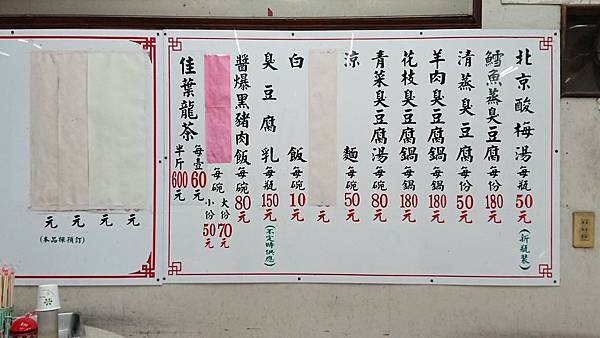 北京酸梅湯每瓶50元(新瓶裝)
鱈魚蒸臭豆腐每份180元
清蒸臭豆腐每份50元
羊肉臭豆腐鍋每鍋180元
花枝臭豆腐鍋每鍋180元
青菜臭豆腐湯每碗80元
涼麵每碗50元
元
白飯每碗10元
臭豆腐乳每瓶150元(不定時供應)
醬爆黑豬肉飯每碗80元
每碗大份70元
小份50元
佳葉龍茶每壺60元
半斤600元
元
元
元
元
(本品採預訂)